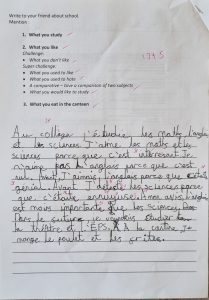 Write to your friend about school.
Mention:
1. What you study
2. What you like
Challenge:
What you don't like
Super challenge:
What you used to like
What you used to hate
A comparative – Give a comparison of two subjects
What you would like to study
3. What you eat in the canteen
Au collège j'étudie les maths, l'anglais
et les sciences. J'aime les maths et les
sciences parce que c'est intéressant. Je
n'aime pas l'anglais parce que c'est
nul. Avant, j'aimais l'anglais parce que c'était
génial. Avant j'détestais les sciences parce
que c'était ennuyeuse. À mon avis l'anglais
est moins important que les sciences.
Dans le future je voudrais étudier
le théâtre et l'EPS. À la cantine, je
mange le poulet et les frites.